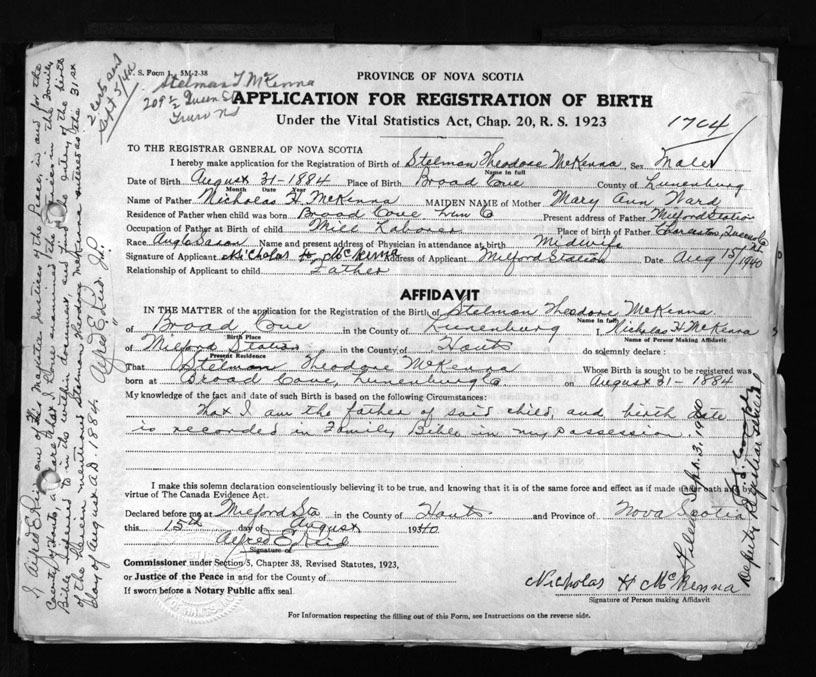 V. S. Form 1. 5M-2-38
Stelman T McKenna
209 1/2 Queen St
Truro NS
2 Certs sent
Sept 5/40
PROVINCE OF NOVA SCOTIA
APPLICATION FOR REGISTRATION OF BIRTH
Under the Vital Statistics Act, Chap. 20, R. S. 1923
1704
TO THE REGISTRAR GENERAL OF NOVA SCOTIA
I hereby make application for the Registration of Birth of Stelman Theodore McKenna, Sex Male
Name in full
Date of Birth August 31-1884 Place of Birth Broad Cove County of Lunenburg
Month Date Year
Name of Father Nicholas H. McKenna MAIDEN NAME of Mother Mary Ann Ward
Residence of Father when child was born Broad Cove Lun Co Present address of Father Milford Station
Occupation of Father at Birth of child Mill Laborer Place of Birth of Father Queens Co
Race Anglo Saxon Name and present address of Physician in attendance at birth Midwife
Signature of Applicant Nicholas H. McKenna Address of Applicant Milford Station Date Aug 15/1940
Relationship of Applicant to child Father
AFFIDAVIT
IN THE MATTER of the application for the Registration of the Birth of Stelman Theodore McKenna
Name in full
of Broad Cove in the County of Lunenburg I, Nicholas H McKenna
Birth Place Name of Person Making Affidavit
of Milford Station in the County of Hants do solemnly declare:
Present Residence
That Stelman Theodore McKenna Whose Birth is sought to be registered was
born at Broad Cove, Lunenburg Co. on August 31-1884
My knowledge of the fact and date of such Birth is based on the following Circumstances:
that I am the father of said child and birth date
is recorded in Family Bible in my possession.
I make this solemn declaration conscientiously believing it to be true, and knowing that it is of the same force and effect as if made under oath and
virtue of The Canada Evidence Act.
Declared before me at Milford Sta in the County of Hants and Province of Nova Scotia
this 15th day of August 1940
Alfred E Reid
Signature of
Commissioner under Section 5, Chapter 38, Revised Statutes, 1923,
or Justice of the Peace in and for the County of
If sworn before a Notary Public affix seal.
Nicholas H McKenna
Signature of Person making Affidavit
For Information respecting the filling out of this Form, see Instructions on the reverse side.
I Alfred E Reid one of His Majesties Justices of the Peace, in and for the
County of Hants, that I have examined the in the Family
Bible referred to in the within document, and find the entry of the birth
of the therein mentioned Stelman Theodore McKenna entered as the 31st
day of August A.D. 1884. Alfred E Reid J.P.
Filed Sept. 3, 1940
Deputy Registrar General